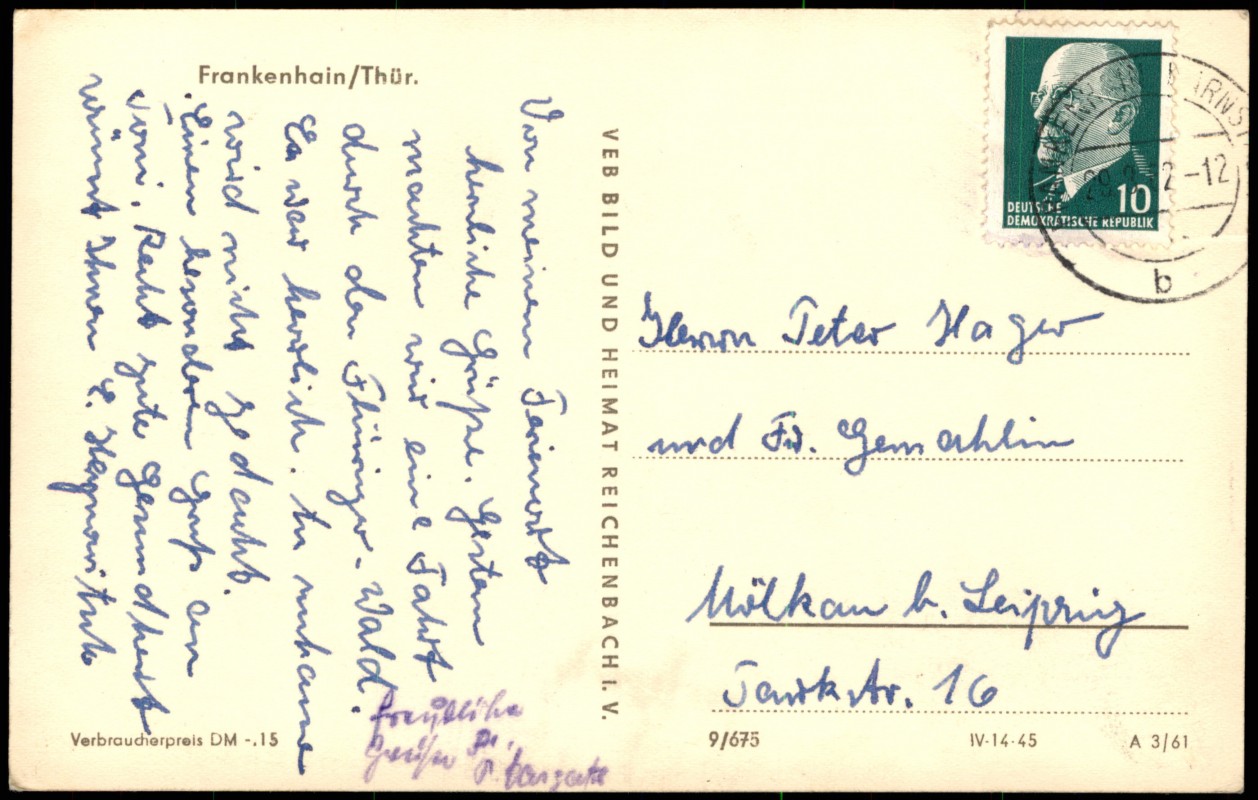 Frankenhain/Thür.
Von meinem Ferienort
herzliche Grüße. Gestern
machten wir eine Fahrt
durch den Thüringer-Wald.
Es war herrlich. An zuhause
wird nicht gedacht.
Einen besonderen Gruß an
Toni. Recht gute Gesundheit
wünscht Ihnen
Grüße
VEB BILD UND HEIMAT REICHENBACH I. V.
10
DEUTSCHE
DEMOKRATISCHE REPUBLIK
-12
b
Herrn Peter Hager
und Fr. Gemahlin
Mölkau b. Leipzig
Parkstr. 16
Verbraucherpreis DM -.15
9/675
IV-14-45
A 3/61